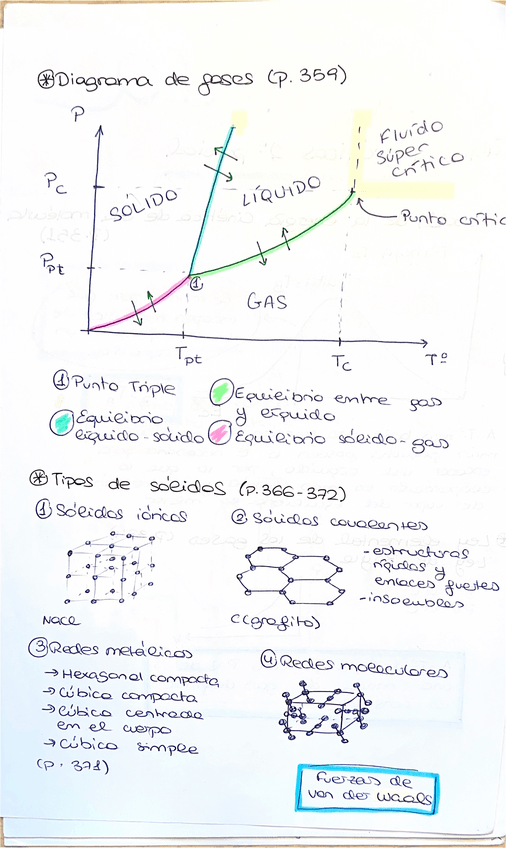 * Diagrama de fases (p. 359)
P
Pc
Ppt
SÓLIDO
LÍQUIDO
Fluído
súper
crítico
Punto crític
1
GAS
Tpt
Tc
Tº
1 Punto Triple
Equilibrio entre gas
y líquido
Equilibrio
líquido-sólido
Equilibrio sólido-gas
* Tipos de sólidos (p. 366-372)
1 Sólidos iónicos
NaCl
2 Sólidos covalentes
- estructuras
rígidas y
enlaces fuertes
- insolubles
C (grafito)
3 Redes metálicas
→ Hexagonal compacta
→ Cúbica compacta
→ Cúbica centrada
en el cuerpo
→ Cúbica simple
(p. 371)
4 Redes moleculares
Fuerzas de
van der Waals